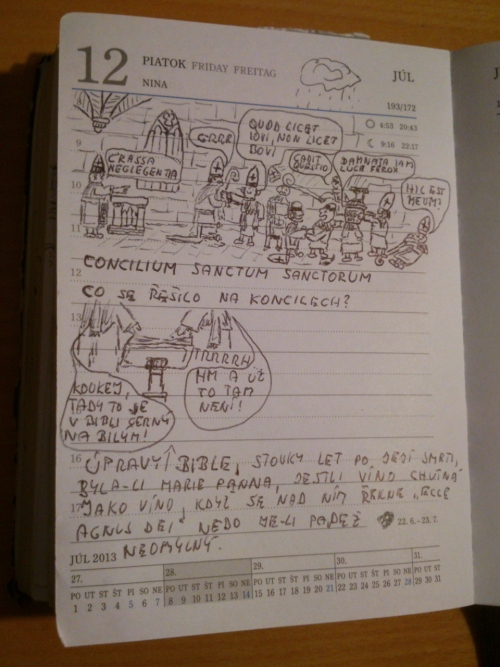 12 PIATOK FRIDAY FREITAG
NINA
JÚL
193/172
4:53 20:43
9:16 22:17
9
10
11
12
13
16
17
GRRR
QUOD LICET
IOVI, NON LICET
BOVI
CRASSA
NEGLEGENTA
CADIT
QUESTIO
DAMNATA IAM
LUCE FEROX
HIC EST
MEUM!
CONCILIUM SANCTUM SANCTORUM
CO SE ŘEŠILO NA KONCILECH?
KOUKEJ,
TADY TO JE
V BIBLI ČERNÝ
NA BILYM!
TRRRRH
HM A UŽ
TO TAM
NENÍ!
ÚPRAVY BIBLE, STOVKY LET PO JEJÍ SMRTI,
BYLA-LI MARIE PANNA, JESTLI VÍNO CHUTNÁ
JAKO VÍNO, KDYŽ SE NAD NÍM ŘEKNE „ECCE
AGNUS DEI" NEBO JE-LI PAPEŽ
NEOMYLNÝ.
22. 6. - 23. 7.
JÚL 2013
27. 28. 29. 30. 31.
PO UT ST ŠT PI SO NE PO UT ST ŠT PI SO NE PO UT ST ŠT PI SO NE PO UT ST ŠT PI SO NE PO UT ST
1 2 3 4 5 6 7 8 9 10 11 12 13 14 15 16 17 18 19 20 21 22 23 24 25 26 27 28 29 30 31